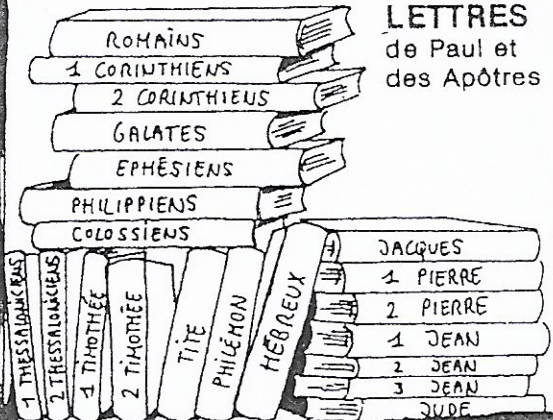 LETTRES
de Paul et
des Apôtres
ROMAINS
1 CORINTHIENS
2 CORINTHIENS
GALATES
EPHÉSIENS
PHILIPPIENS
COLOSSIENS
1 THESSALONICIENS
2 THESSALONICIENS
1 TIMOTHÉE
2 TIMOTHÉE
TITE
PHILÉMON
HÉBREUX
JACQUES
1 PIERRE
2 PIERRE
1 JEAN
2 JEAN
3 JEAN
JUDE